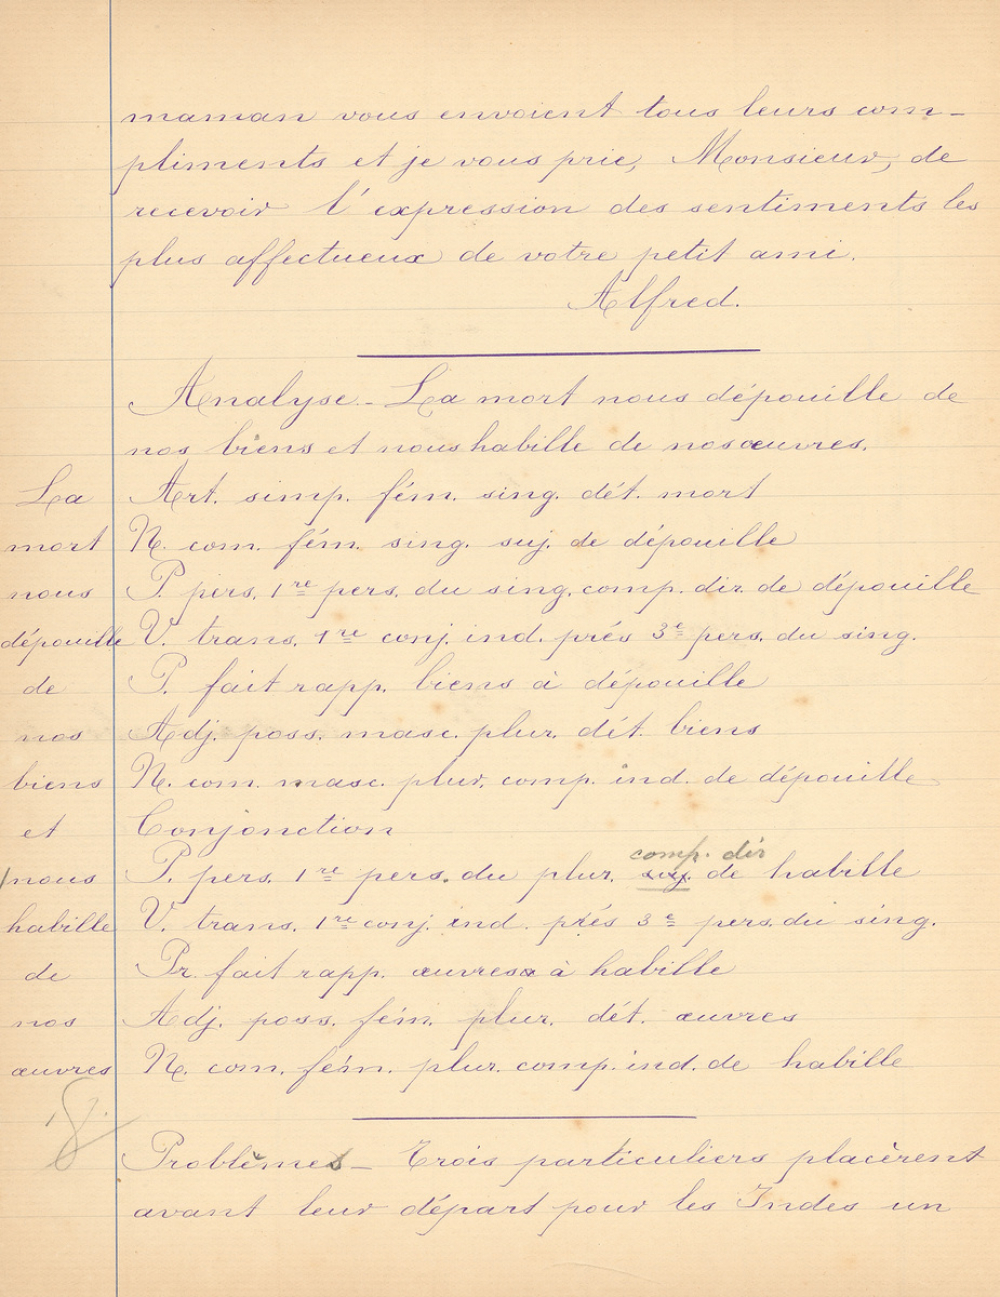 maman vous envoient tous leurs com-
pliments et je vous prie, Monsieur, de
recevoir l'expression des sentiments les
plus affectueux de votre petit ami.
Alfred.
Analyse - La mort nous dépouille de
nos biens et nous habille de nos œuvres.
La Art. simp. fém. sing. dét. mort
mort N. com. fém. sing. suj. de dépouille
nous P. pers. 1re pers. du sing. comp. dir. de dépouille
dépouille V. trans. 1re conj. ind. prés 3e pers. du sing.
de P. fait rapp. biens à dépouille
nos Adj. poss. masc. plur. dét. biens
biens N. com. masc. plur. comp. ind. de dépouille
et Conjonction
comp. dir
nous P. pers. 1re pers. du plur. suj. de habille
habille V. trans. 1re conj. ind. prés 3e pers. du sing.
de Pr. fait rapp. œuvres à habille
nos Adj. poss. fém. plur. dét. œuvres
œuvres N. com. fém. plur. comp. ind. de habille
Problèmes - Trois particuliers placèrent
avant leur départ pour les Indes un